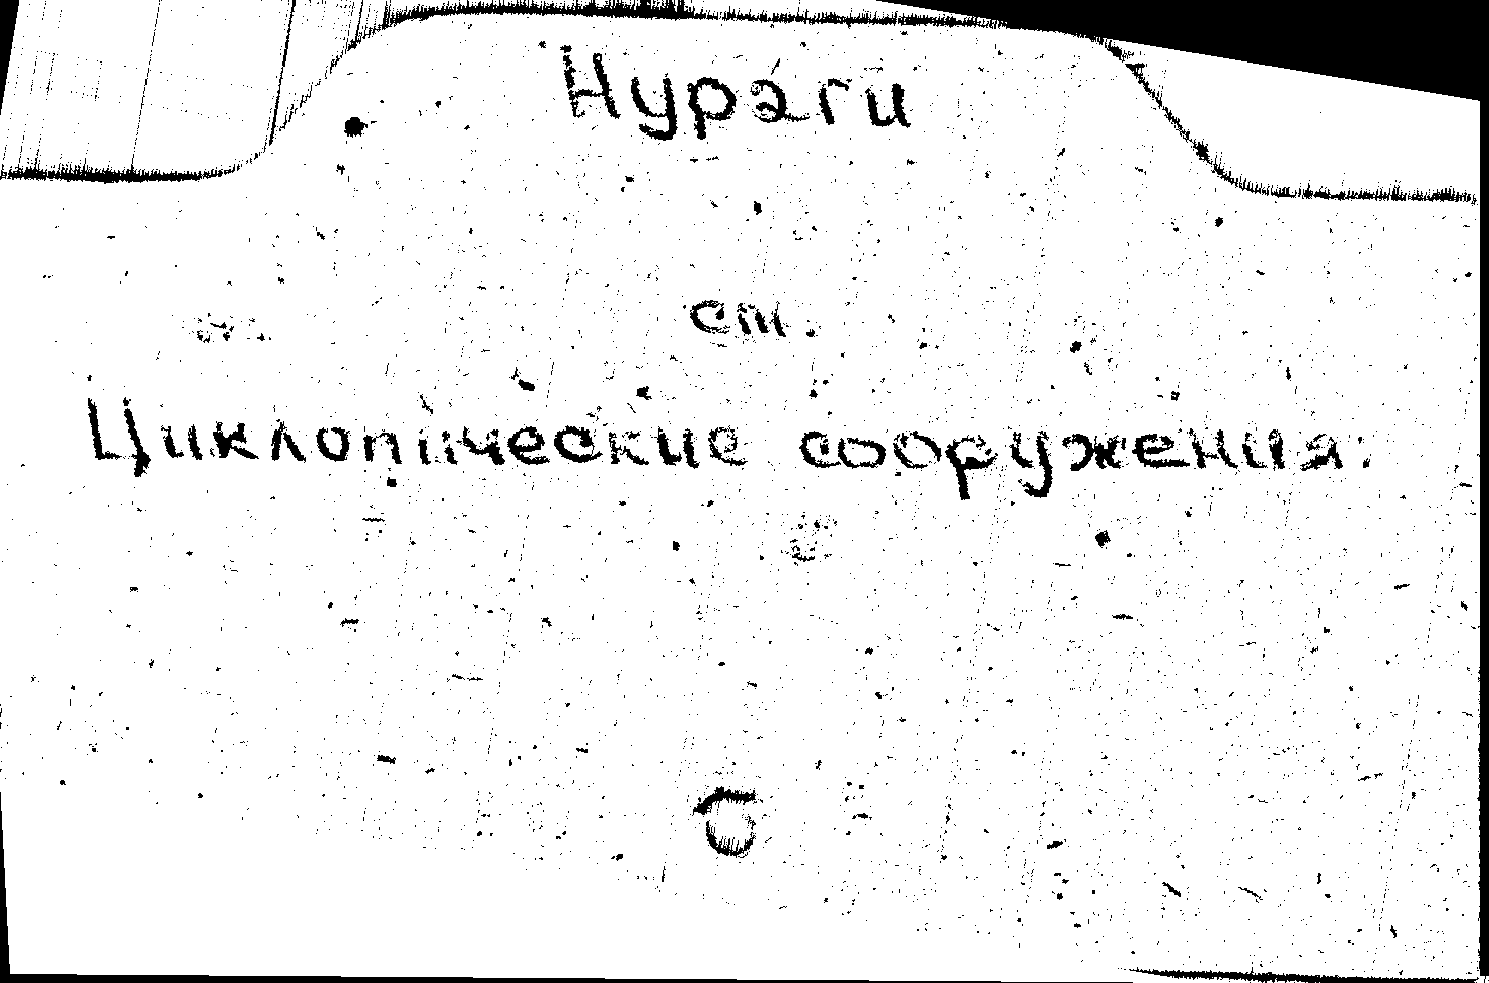 Нураги
ст.
Циклопические сооружения.